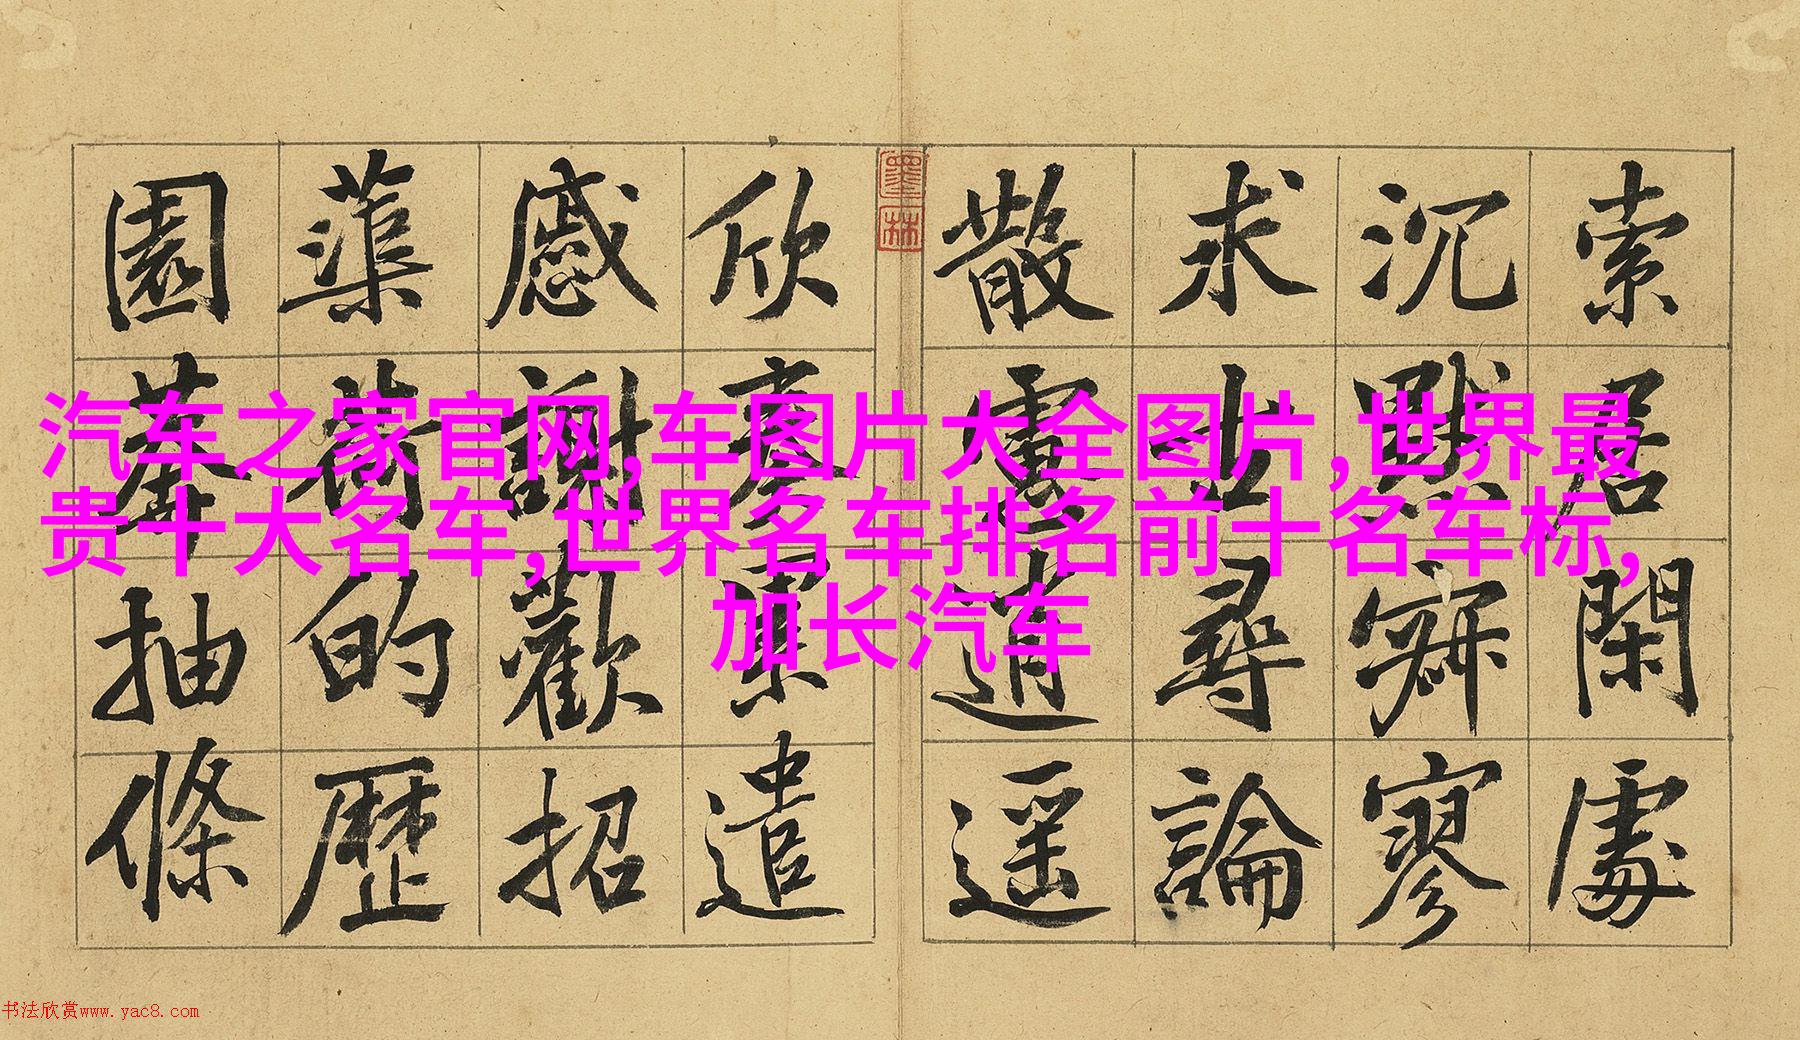 索居閑處
沉默寂寥
求古尋論
散慮逍遥
欣奏累遣
慼謝歡招
蕖荷的歷
園莽抽條
墨林
汽车之家官网,车图片大全图片,世界最
贵十大名车,世界名车排名前十名车标,
加长汽车
书法欣赏www.yac8.com